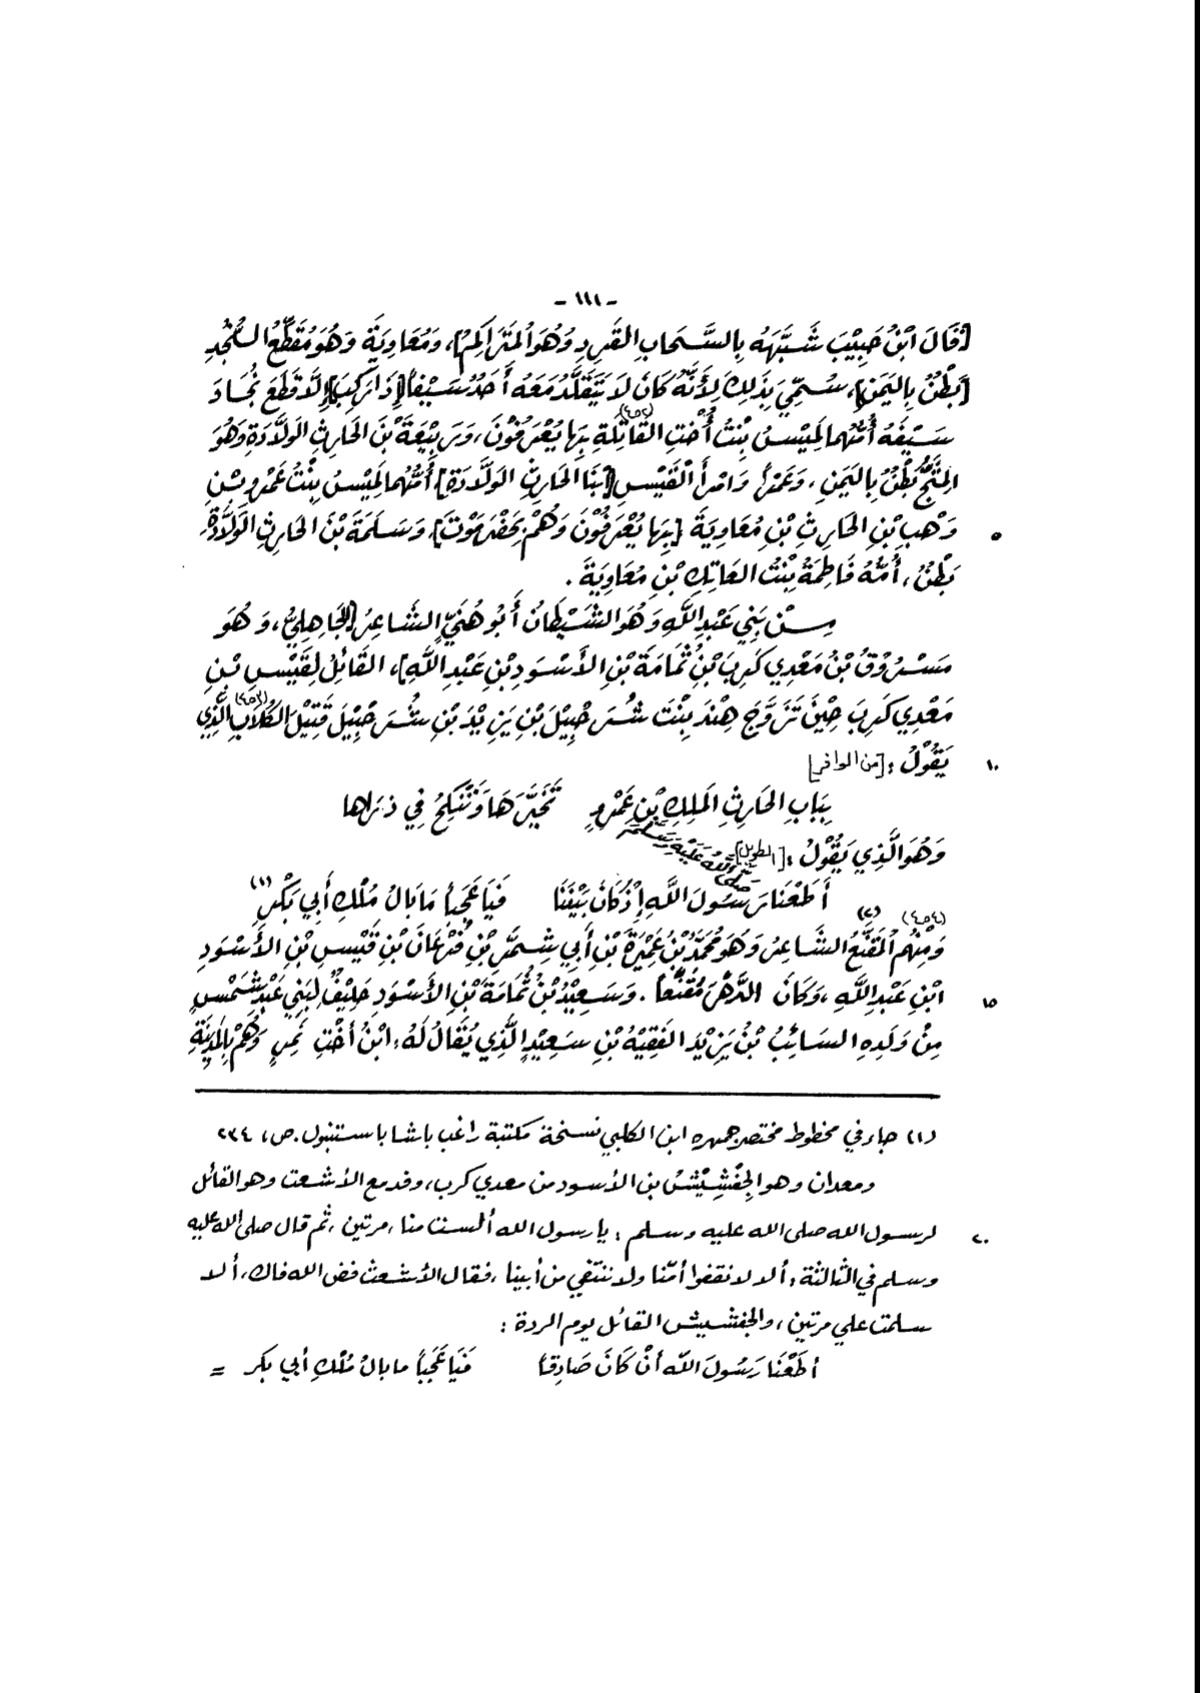 - ١١١ -
[قَالَ ابْنُ حَبِيْبَ شَبَّهَهُ بِالسَّحَابِ القَرِدِ وَهُوَ المُتَرَاكِمُ]، وَمُعَاوِيَةَ وَهُوَ مُقَطِّعُ النُّجُدِ
[بَطْنٌ بِاليَمَنِ]، سُمِّيَ بِذَلِكَ لِأَنَّهُ كَانَ لَا يَتَقَلَّدُ مَعَهُ أَحَدٌ سَيْفاً [إِذَا رَكِبَ] إِلَّا قَطَعَ نِجَادَ
سَيْفِهِ أُمُّهُمَا لَمِيْسُ بِنْتُ أُخْتِ القَاتِلَةِ (٤٥٢) بِهَا يُعْرَفُوْنَ، وَرَبِيْعَةَ بْنَ الحَارِثِ الوَلَّادَةِ وَهُوَ
المِثَجُّ بَطْنٌ بِاليَمَنِ، وَعَمْراً وَامْرَأَ القَيْسِ [ابْنَا الحَارِثِ الوَلَّادَةِ] أُمُّهُمَا لَمِيْسُ بِنْتُ عَمْرِو بْنِ
وَهْبِ بْنِ الحَارِثِ بْنِ مُعَاوِيَةَ [بِهَا يُعْرَفُوْنَ وَهُمْ بِحَضْرَمَوْتَ]، وَسَلَمَةَ بْنَ الحَارِثِ الوَلَّادَةِ ٥
بَطْنٌ، أُمُّهُ فَاطِمَةُ بِنْتُ العَاتِكِ بْنِ مُعَاوِيَةَ.
مِنْ بَنِي عَبْدِ اللَّهِ وَهُوَ الشَّيْطَانُ أَبُو هُنَيٍّ الشَّاعِرُ [الجَاهِلِيُّ، وَهُوَ
مَسْرُوْقُ بْنُ مَعْدِي كَرِبَ بْنِ ثُمَامَةَ بْنِ الأَسْوَدِ بْنِ عَبْدِ اللَّهِ]، القَائِلُ لِقَيْسِ بْنِ
مَعْدِي كَرِبَ حِيْنَ تَزَوَّجَ هِنْدَ بِنْتَ شُرَحْبِيْلَ بْنِ يَزِيْدَ بْنِ شُرَحْبِيْلَ قَتِيْلِ الكُلَابِ (٤٥٣) الَّذِي
يَقُوْلُ: [من الوافر] ١٠
بِبَابِ الحَارِثِ المَلِكِ بْنِ عَمْرٍو تَخَيَّرَهَا وَتُنْكِحُ فِي ذُرَاهَا
وَهُوَ الَّذِي يَقُوْلُ: [الطويل]
أَطَعْنَا رَسُولَ اللَّهِ صَلَّى اللَّهُ عَلَيْهِ وَسَلَّمَ إِذْ كَانَ بَيْنَنَا فَيَا عَجَباً مَا بَالُ مُلْكِ أَبِي بَكْرِ (١)
وَمِنْهُم المُقَنَّعُ (٢) الشَّاعِرُ (٤٥٤) وَهُوَ مُحَمَّدُ بْنُ عُمَيْرَةَ بْنِ أَبِي شِمْرِ بْنِ فُرْعَانَ بْنِ قَيْسِ بْنِ الأَسْوَدِ
ابْنِ عَبْدِ اللَّهِ، وَكَانَ الدَّهْرَ مُقَنَّعاً. وَسَعِيْدُ بْنُ ثُمَامَةَ بْنِ الأَسْوَدِ حَلِيْفٌ لِبَنِي عَبْدِ شَمْسٍ ١٥
مِنْ وَلَدِهِ السَائِبُ بْنُ يَزِيْدَ الفَقِيْهُ بْنِ سَعِيْدٍ الَّذِي يُقَالُ لَهُ: ابْنُ أُخْتِ نَمِرٍ وَهُمْ بِالمَدِيْنَةِ
(١) جاء في مخطوط مختصر جمهرة ابن الكلبي نسخة مكتبة راغب باشا باستنبول. ص، ٢٣٤
ومعدان وهو الجِفْشِيْشُ بن الأسود من معدي كرب، وفد مع الأشعث وهو القائل
لرسول الله صلى الله عليه وسلم: يا رسول الله ألست منا، مرتين، ثم قال صلى الله عليه ٢٠
وسلم في الثالثة: ألا لا نقفوا أمّنا ولا ننتفي من أبينا، فقال الأشعث فض الله فاك، ألا
سلمت علي مرتين، والجفشيش القائل يوم الردة:
أطَعْنَا رَسُولَ اللّه أنْ كَانَ صَادِقاً فَيَا عَجَباً ما بالُ مُلْكِ أبي بكر =